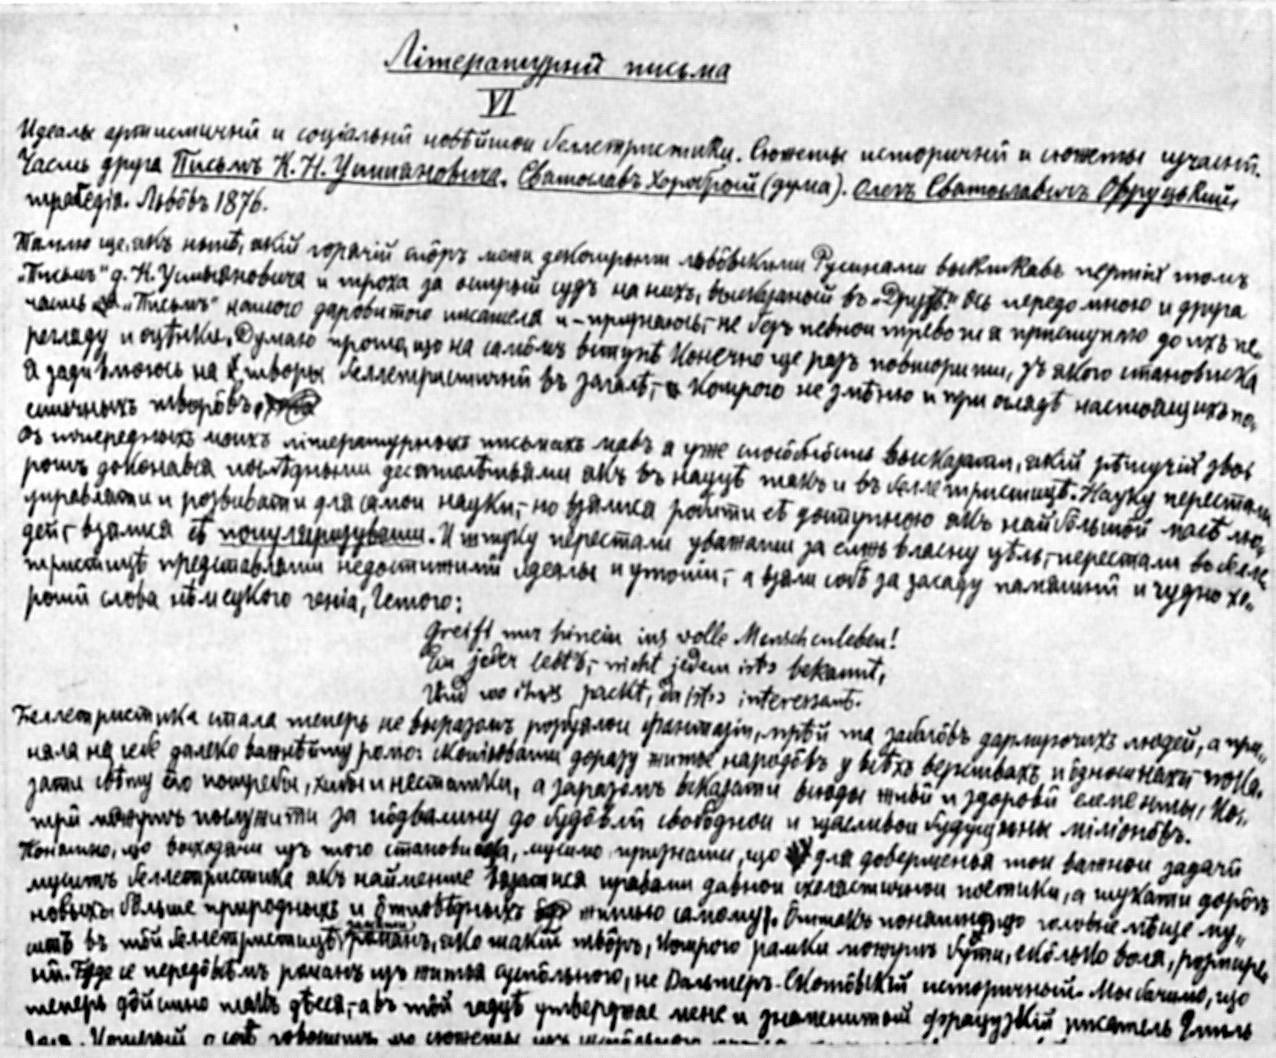 Літературнӥ письма
VI
Идеалы артистичнӥ и соціальнӥ новѣйшои беллетристики. Сюжеты историчнӥ и сюжеты сучаснӥ.
Часть друга Письмъ К. Н. Устіяновича. Святославъ Хоробрый (дума). Олегъ Святославичъ Овруцький,
трагедія. Львôвъ 1876.
Памлю ще, якъ нынѣ, якій горячій спôръ межи декотрыми львôвскими Русинами выкликавъ першій томъ
„Письмъ" д. К. Устіяновича и троха за острый судъ на нихъ, высказаный въ „Друзѣ". Ось передо мною и друга
часть „Письмъ" нашого даровитого писателя и – признаюсь, – не безъ певнои тревоги я приступаю до ихъ пе-
регляду и оцѣнки. Думаю прото, що на самôмъ вступѣ конечно ще разъ повторити, зъ якого становиска
я задивлююсь на творы беллетристичнӥ въ загалѣ, – котрого не змѣню и при оглядѣ настоящихъ по-
етичныхъ творôвъ.
Въ попереднихъ моихъ літературныхъ письмахъ мавъ я уже спосôбнôсть высказати, якій рѣшучій зво-
ротъ доконався послѣдными десятилѣтьями якъ въ науцѣ такъ и въ беллетристицѣ. Науку перестали
управляти и розвивати для самои науки, – но взялися робити еѣ доступною якъ найбôльшôй масѣ лю-
дей, – взялися еѣ популяризувати. И штуку перестали уважати за еѣ власну цѣль, – перестали въ белле-
тристицѣ представляти недостижимӥ идеалы и утопіи, – а взяли собѣ за засаду памятнӥ и чудно хо-
рошӥ слова нѣмецкого генія, Гетого:
Greift nur hinein ins volle Menschenleben!
Ein jeder lebt's, – nicht jedem ists bekannt,
Und wo ihrs packt, da ists interessant.
Беллетристика стала теперь не выразомъ розбуялои фантазіи, мрѣй та забагôвъ дармуючихъ людей, а при-
няла на себе далеко важнѣйшу ролю: скопіювати доразу житье народôвъ у всѣхъ верствахъ и бдносинахъ, пока-
зати свѣту его потребы, хибы и нестатки, а заразомъ вказати всюды живӥ и здоровӥ елементы, кот-
трӥ можуть послужити за пôдвалину до будôвлӥ свободнои и щасливои будущины міліонôвъ.
Конечно, що выходячи изъ того становиска, мусимо признати, що для довершенья тои важнои задачӥ
мусить беллетристика якъ найменше вязатися правами давнои схоластичнои поетики, а шукати дорôгъ
новыхъ, бôльше природныхъ и ôтповѣдныхъ житью самому. Ôттакъ понятно, що головне мѣсце му-
сить въ тôй беллетристицѣ романъ, яко такій твôръ, котрого рамки можуть бути, скôлько воля, розшире-
нӥ. Буде се передôвсѣмъ романъ изъ житья суспôльного, не Вальтеръ-Скотôвскій историчный. Мы бачимо, що
теперь дôйстно такъ дѣеся, – а въ тôй гадцѣ утверджае мене и знаменитый французскій писатель Еміль